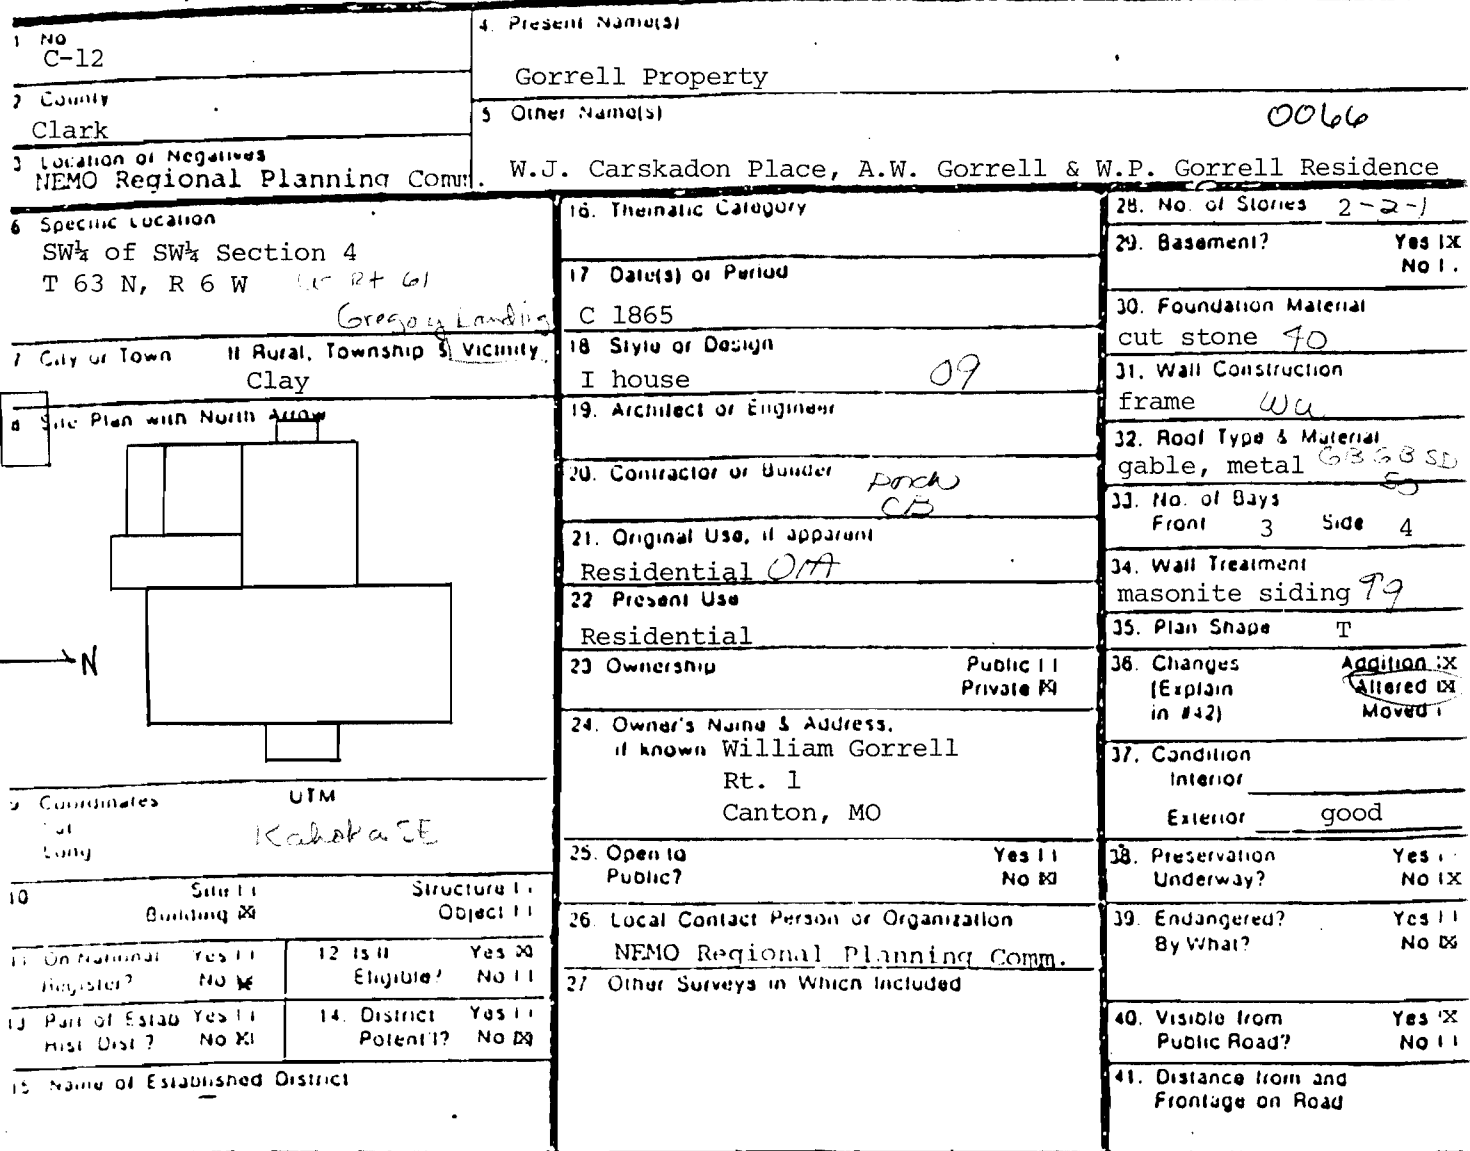 1 No
C-12
4. Present Name(s)
Gorrell Property
2 County
Clark
5 Other Name(s)
0066
W.J. Carskadon Place, A.W. Gorrell & W.P. Gorrell Residence
3 Location of Negatives
NEMO Regional Planning Comm.
6 Specific Location
SW¼ of SW¼ Section 4
T 63 N, R 6 W Rt 61
Gregory Landing
7 City or Town If Rural, Township & Vicinity
Clay
8 Site Plan with North Arrow
N
9 Coordinates UTM
Lat
Long
Kahoka SE
10 Site | |
Building |X|
Structure | |
Object | |
11 On National Register? Yes | |
No |X|
12 Is It Eligible? Yes |X|
No | |
13 Part of Estab Hist Dist? Yes | |
No |X|
14. District Potent'l? Yes | |
No |X|
15 Name of Established District
16. Thematic Category
17 Date(s) or Period
C 1865
18 Style or Design
I house 09
19. Architect or Engineer
20. Contractor or Builder
porch
CB
21. Original Use, if apparent
Residential 01A
22 Present Use
Residential
23 Ownership Public | |
Private |X|
24. Owner's Name & Address,
if known William Gorrell
Rt. 1
Canton, MO
25. Open to Public? Yes | |
No |X|
26. Local Contact Person or Organization
NEMO Regional Planning Comm.
27 Other Surveys in Which Included
28. No. of Stories 2-2-1
29. Basement? Yes |X
No | .
30. Foundation Material
cut stone 40
31. Wall Construction
frame WU
32. Roof Type & Material
gable, metal GB GB SD
33. No. of Bays
Front 3 Side 4
34. Wall Treatment
masonite siding 99
35. Plan Shape T
36. Changes Addition |X
(Explain Altered |X|
in #42) Moved |
37. Condition
Interior
Exterior good
38. Preservation Yes
Underway? No |X
39. Endangered? Yes | |
By What? No |X|
40. Visible from Yes |X
Public Road? No | |
41. Distance from and
Frontage on Road